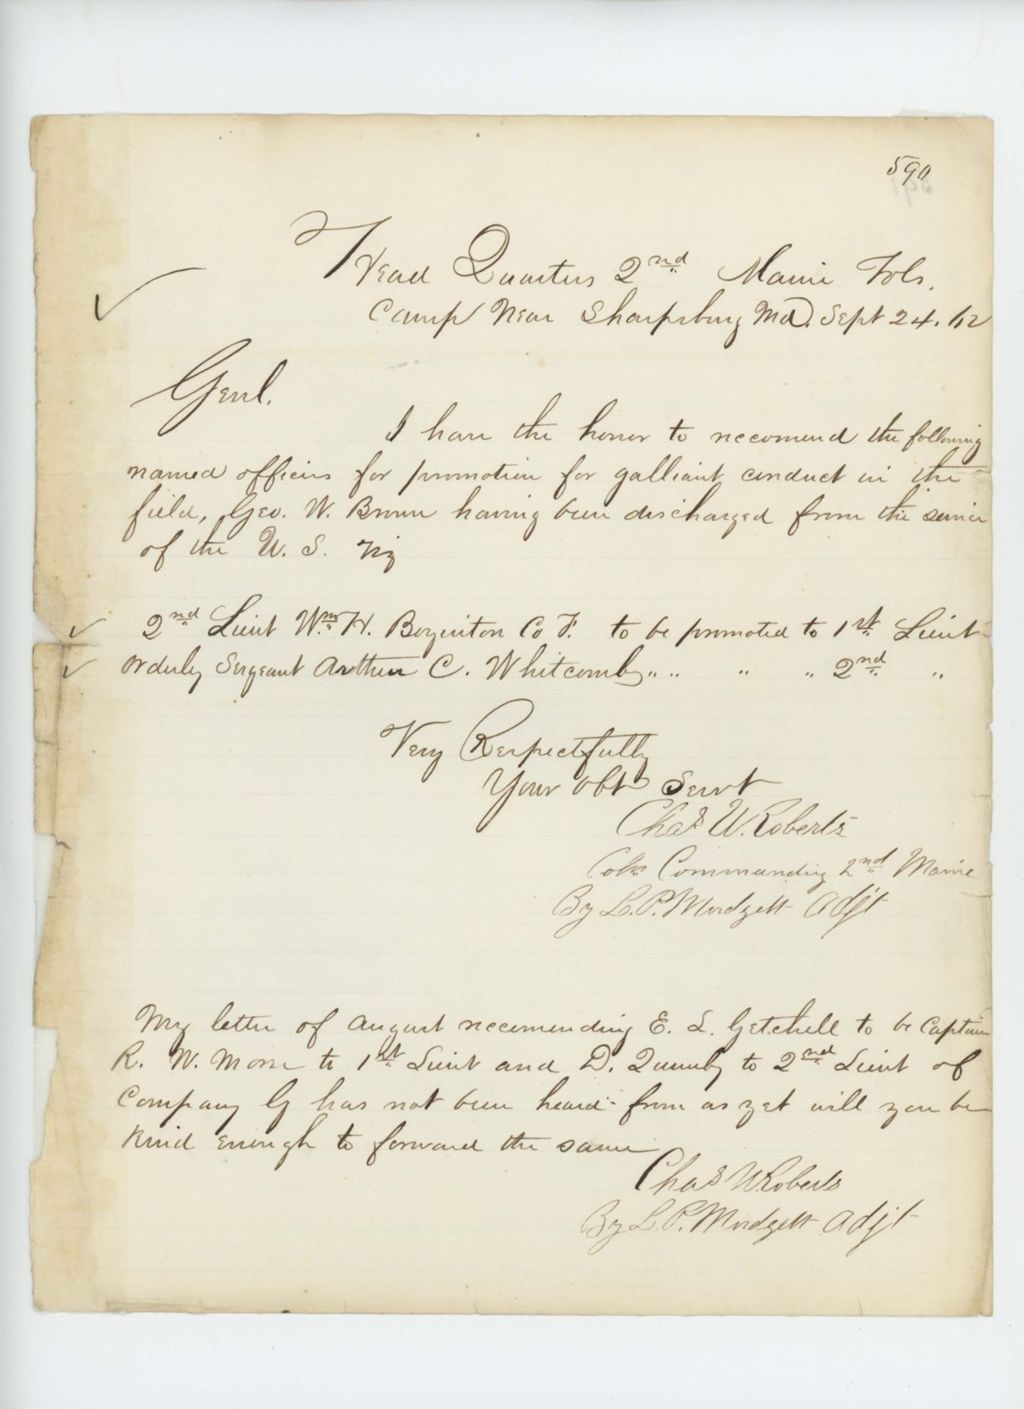 590
Head Quarters 2nd Maine Vols.
Camp Near Sharpsburg Md. Sept 24. 62
Genl.
I have the honor to reccomend the following
named officers for promotion for galliant conduct in the
field, Geo. W. Brown having been discharged from the service
of the U. S. Viz
2nd Lieut Wm. H. Boyinton Co F. to be promoted to 1st Lieut
Orderly Sergeant Arthur C. Whitcomb " " " " 2nd "
Very Respectfully
Your Obt Servt
Chas W. Roberts
Col. Commanding 2nd Maine
By L. P. Mudgett Adjt
My letter of August reccomending E. L. Getchell to be Captain
R. W. Morse to 1st Lieut and D. Quimby to 2nd Lieut of
Company G has not been heard from as yet will you be
kind enough to forward the same
Chas W Roberts
By L. P. Mudgett Adjt